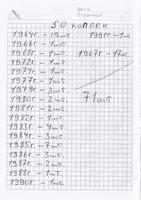 Дата
Страница
50 копеек
1964г. - 19шт.
1991г - 1шт.
1966г - 1шт.
1968г - 1шт.
1967г - 17шт.
1972г - 1шт.
1974г - 1шт.
1977г - 1шт.
1979г - 3шт.
71шт
1980г - 2шт.
1981г - 2шт.
1982г - 1шт.
1983г - 4шт.
1984г - 3шт.
1985г - 7шт.
1986г - 3шт.
1987г - 2шт.
1988г - 1шт.
1990г - 1шт.